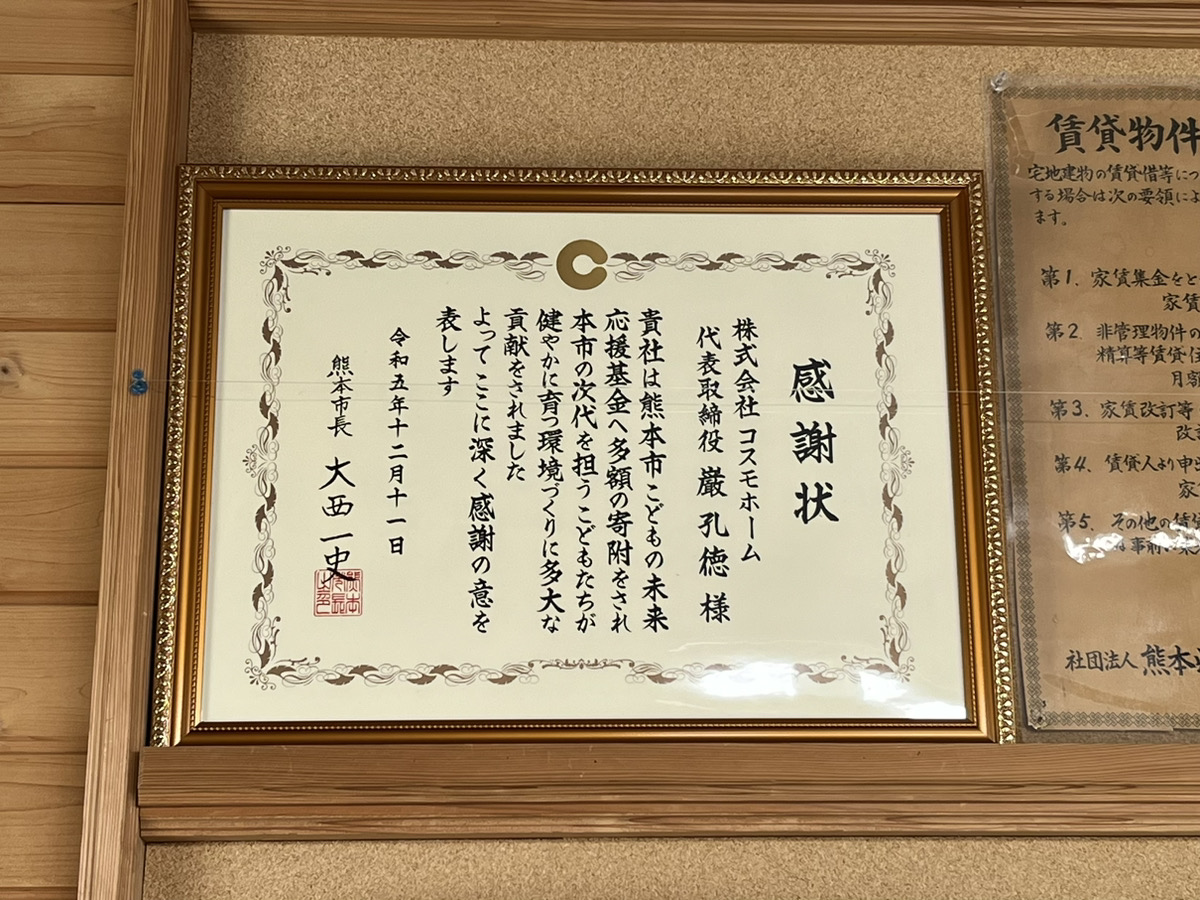 感謝状
株式会社 コスモホーム
代表取締役 巌 孔徳 様
貴社は熊本市こどもの未来
応援基金へ多額の寄附をされ
本市の次代を担うこどもたちが
健やかに育つ環境づくりに多大な
貢献をされました
よってここに深く感謝の意を
表します
令和五年十二月十一日
熊本市長 大西一史
賃貸物件
宅地建物の賃貸借等につ
する場合は次の要領によ
ます。
第1. 家賃集金をと
家賃
第2. 非管理物件の
精算等賃貸住
月額
第3. 家賃改訂等
改訂
第4. 賃貸人より申出
家賃
第5. その他の賃
は事前に
社団法人 熊本